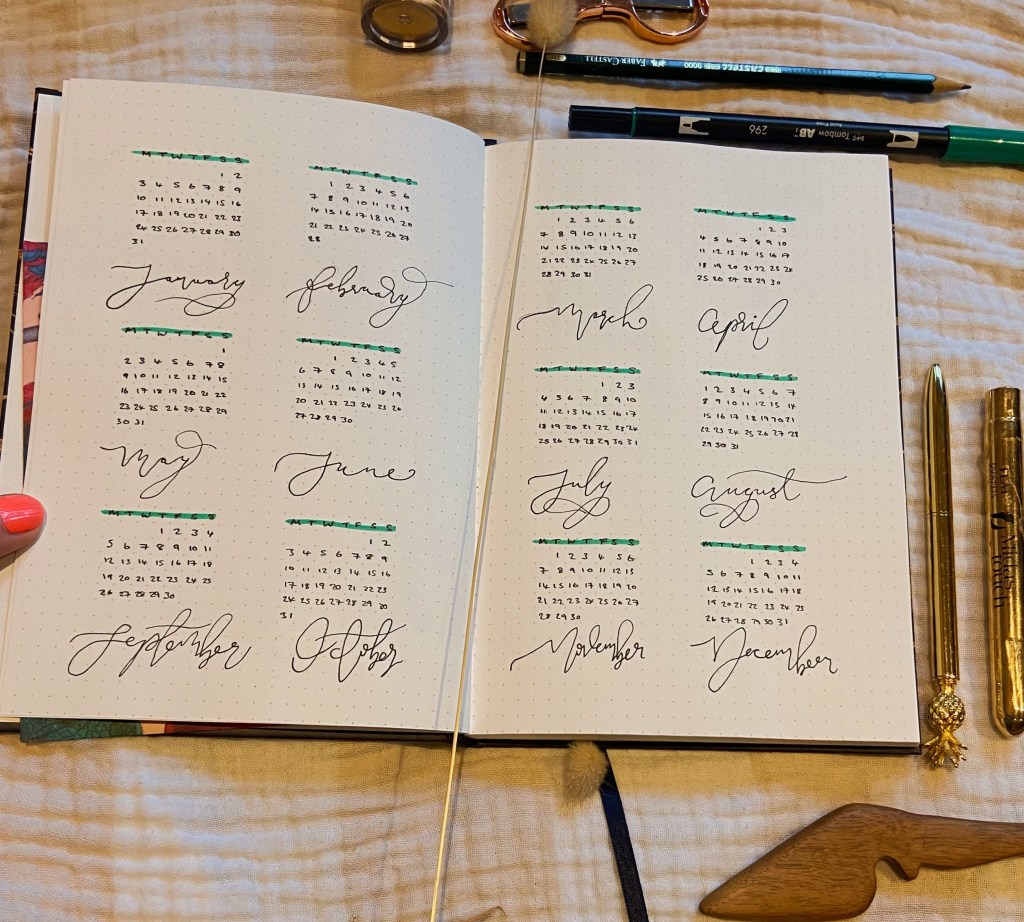 FABER-CASTELL CASTELL 9000
Tombow ABT
296
M T W T F S S
1 2
3 4 5 6 7 8 9
10 11 12 13 14 15 16
17 18 19 20 21 22 23
24 25 26 27 28 29 30
31
January
M T W T F S S
1 2 3 4 5 6
7 8 9 10 11 12 13
14 15 16 17 18 19 20
21 22 23 24 25 26 27
28
February
M T W T F S S
1
2 3 4 5 6 7 8
9 10 11 12 13 14 15
16 17 18 19 20 21 22
23 24 25 26 27 28 29
30 31
May
M T W T F S S
1 2 3 4 5
6 7 8 9 10 11 12
13 14 15 16 17 18 19
20 21 22 23 24 25 26
27 28 29 30
June
M T W T F S S
1 2 3 4
5 6 7 8 9 10 11
12 13 14 15 16 17 18
19 20 21 22 23 24 25
26 27 28 29 30
September
M T W T F S S
1 2
3 4 5 6 7 8 9
10 11 12 13 14 15 16
17 18 19 20 21 22 23
24 25 26 27 28 29 30
31
October
M T W T F S S
1 2 3 4 5 6
7 8 9 10 11 12 13
14 15 16 17 18 19 20
21 22 23 24 25 26 27
28 29 30 31
March
M T W T F S S
1 2 3
4 5 6 7 8 9 10
11 12 13 14 15 16 17
18 19 20 21 22 23 24
25 26 27 28 29 30
April
M T W T F S S
1 2 3
4 5 6 7 8 9 10
11 12 13 14 15 16 17
18 19 20 21 22 23 24
25 26 27 28 29 30 31
July
M T W T F S S
1 2 3 4 5 6 7
8 9 10 11 12 13 14
15 16 17 18 19 20 21
22 23 24 25 26 27 28
29 30 31
August
M T W T F S S
1 2 3 4 5 6
7 8 9 10 11 12 13
14 15 16 17 18 19 20
21 22 23 24 25 26 27
28 29 30
November
M T W T F S S
1 2 3 4
5 6 7 8 9 10 11
12 13 14 15 16 17 18
19 20 21 22 23 24 25
26 27 28 29 30 31
December
Midas
Touch